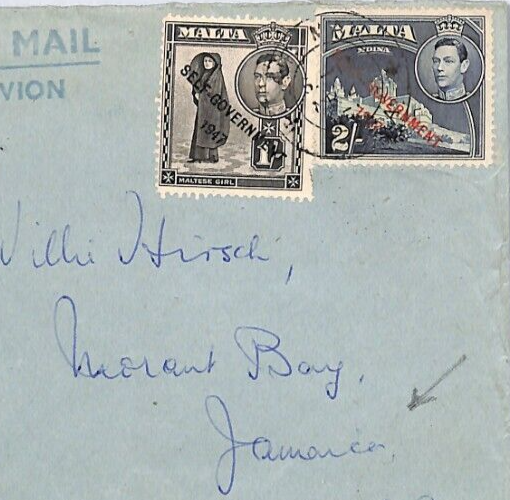 MAIL
VION
MALTA
SELF-GOVERNMENT
1947
1/-
MALTESE GIRL
MALTA
M'DINA
GOVERNMENT
2/-
Willi Hirsch,
Morant Bay,
Jamaica